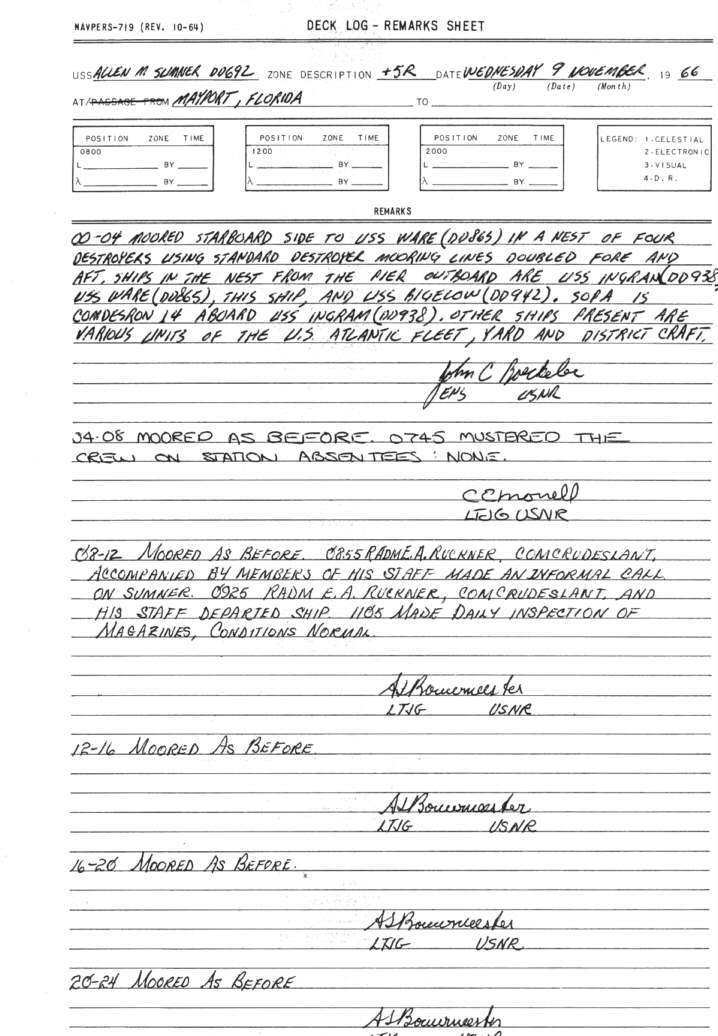 NAVPERS-719 (REV. 10-64) DECK LOG - REMARKS SHEET
USS ALLEN M SUMNER DD692 ZONE DESCRIPTION +5R DATE WEDNESDAY 9 NOVEMBER, 19 66
(Day) (Date) (Month)
AT/PASSAGE FROM MAYPORT, FLORIDA TO
POSITION ZONE TIME
0800
L BY
λ BY
POSITION ZONE TIME
1200
L BY
λ BY
POSITION ZONE TIME
2000
L BY
λ BY
LEGEND: 1-CELESTIAL
2-ELECTRONIC
3-VISUAL
4-D. R.
REMARKS
00-04 MOORED STARBOARD SIDE TO USS WARE (DD865) IN A NEST OF FOUR
DESTROYERS USING STANDARD DESTROYER MOORING LINES DOUBLED FORE AND
AFT. SHIPS IN THE NEST FROM THE PIER OUTBOARD ARE USS INGRAM (DD938
USS WARE (DD865), THIS SHIP, AND USS BIGELOW (DD942). SOPA IS
COMDESRON 14 ABOARD USS INGRAM (DD938). OTHER SHIPS PRESENT ARE
VARIOUS UNITS OF THE U.S. ATLANTIC FLEET, YARD AND DISTRICT CRAFT.
John C Boeckeler
ENS USNR
04-08 MOORED AS BEFORE. 0745 MUSTERED THE
CREW ON STATION ABSENTEES: NONE.
LTJG USNR
08-12 MOORED AS BEFORE. 0855 RADM E.A. RUCKNER, COMCRUDESLANT,
ACCOMPANIED BY MEMBERS OF HIS STAFF MADE AN INFORMAL CALL
ON SUMNER. 0925 RADM E.A. RUCKNER, COMCRUDESLANT, AND
HIS STAFF DEPARTED SHIP. 1105 MADE DAILY INSPECTION OF
MAGAZINES, CONDITIONS NORMAL.
AJBouwmeester
LTJG USNR
12-16 MOORED AS BEFORE
AJBouwmeester
LTJG USNR
16-20 MOORED AS BEFORE.
AJBouwmeester
LTJG USNR
20-24 MOORED AS BEFORE
AJBouwmeester